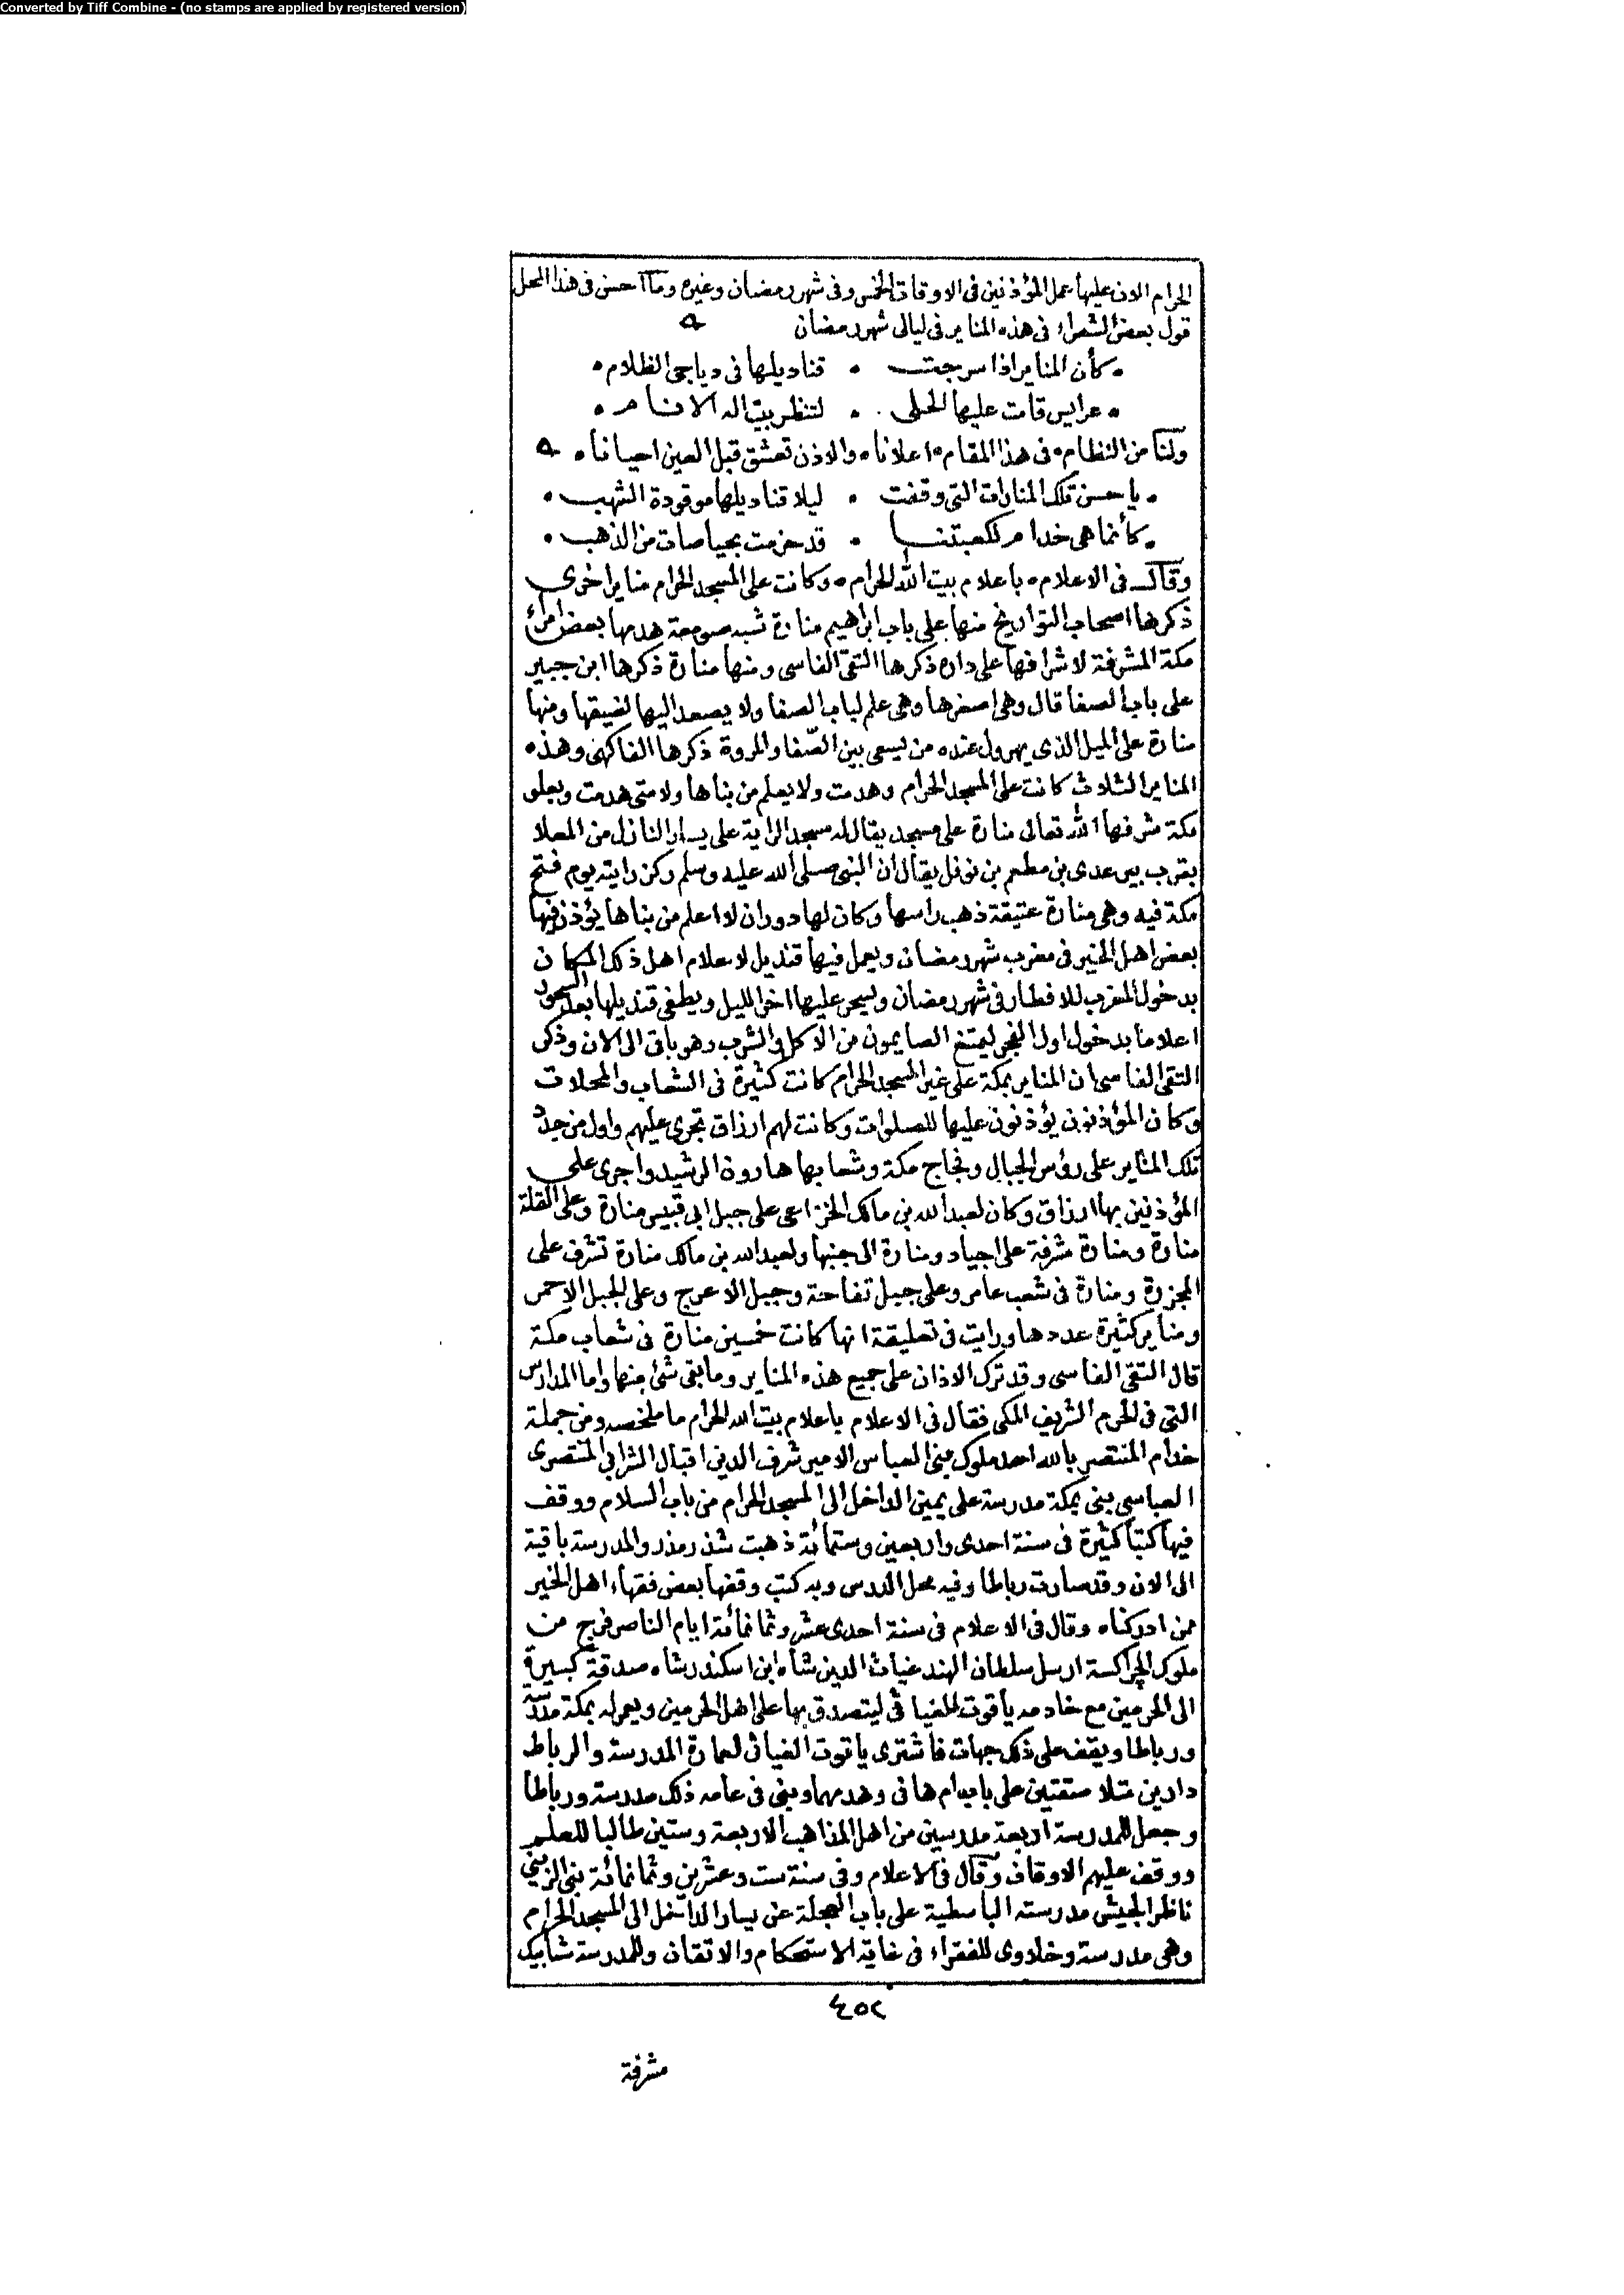 Converted by Tiff Combine - (no stamps are applied by registered version)
الحرام الان عليها عمل المؤذنين فى الاوقات الخمس وفى شهر رمضان وغيره وما احسن فى هذا المحل
قول بعض الشعراء فى هذه المناير فى ليالى شهر رمضان
كأن المناير اذا سرجت • قناديلها فى دياجى الظلام •
عرايس قامت عليها الحلى • لتنظر بيت اله الانام •
ولنا من النظام • فى هذا المقام • اعلانا • والاذن تعشق قبل العين احيانا •
يا حسن تلك المنارات التى وقفت • ليلا قناديلها موقودة الشهب •
كأنما هى خدام لكعبتنا • قد حزمت بحياصات من الذهب •
وقال فى الاعلام • باعلام بيت الله الحرام • وكانت على المسجد الحرام مناير اخرى
ذكرها اصحاب التواريخ منها على باب ابراهيم منارة شبه صومعة هدمها بعض امراء
مكة المشرفة لاشرافها على داره ذكرها التقى الفاسى ومنها منارة ذكرها ابن جبير
على باب الصفا قال وهى اصغرها وهى علم لباب الصفا ولا يصعد اليها لضيقها ومنها
منارة على الميل الذى يهرول عنده من يسعى بين الصّفا والمروة ذكرها الفاكهى وهذه
المناير الثلاث كانت على المسجد الحرام وهدمت ولا يعلم من بناها ولا متى هدمت وبعلو
مكة شرفها الله تعالى منارة على مسجد يقال له مسجد الراية على يسار النازل من المعلا
بقرب بير عدى بن مطعم بن نوفل يقال ان النبى صلى الله عليه وسلم ركز رايته يوم فتح
مكة فيه وهى منارة عتيقة ذهب راسها وكان لها دوران لا اعلم من بناها يؤذن فيها
بعض اهل الخير فى مغرب شهر رمضان ويعمل فيها قنديل لاعلام اهل ذلك المكان
بدخول المغرب للافطار فى شهر رمضان ويسحر عليها اخر الليل ويطفى قنديلها بعد السحور
اعلاما بدخول اول الفجر ليمتنع الصايمون من الاكل والشرب وهو باق الى الان وذكر
التقى الفاسى ان المناير بمكة على غير المسجد الحرام كانت كثيرة فى الشعاب والمحلات
وكان المؤذنون يؤذنون عليها للصلوات وكانت لهم ارزاق تجرى عليهم واول من جدد
تلك المناير على رؤس الجبال وفجاج مكة وشعابها هارون الرشيد واجرى على
المؤذنين بها ارزاق وكان لعبد الله بن مالك الخزاعى على جبل ابى قبيس منارة وعلى القلة
منارة ومنارة مشرفة على اجياد ومنارة الى جنبها ولعبد الله بن مالك منارة تشرف على
المجزرة ومنارة فى شعب عامر وعلى جبل تفاحة وجبل الاعرج وعلى الجبل الاحمر
ومناير كثيرة عددها ورايت فى تعليقة انها كانت خمسين منارة فى شعاب مكة
قال التقى الفاسى وقد ترك الاذان على جميع هذه المناير وما بقى شئ منها واما المدارس
التى فى الحرم الشريف المكى فقال فى الاعلام باعلام بيت الله الحرام ما ملخصه ومن جملة
خدام المنتصر بالله احد ملوك بنى العباس الامير شرف الدين اقبال الشرابى المنتصرى
العباسى بنى بمكة مدرسة على يمين الداخل الى المسجد الحرام من باب السلام ووقف
فيها كتبا كثيرة فى سنة احدى واربعين وستمائة ذهبت شذر مذر والمدرسة باقية
الى الان وقد صارت رباطا وفيه محل الدرس وبه كتب وقفها بعض فقهاء اهل الخير
ممن ادركناه وقال فى الاعلام فى سنة احدى عشر وثمانمائة ايام الناصر فرج من
ملوك الجراكسة ارسل سلطان الهند غياث الدين شاه ابن اسكندر شاه صدقة كبيرة
الى الحرمين مع خادمه ياقوت الغياثى ليتصدق بها على اهل الحرمين ويعمر له بمكة مدرسة
ورباطا ويقف على ذلك جهات فاشترى ياقوت الغياثى لعمارة المدرسة والرباط
دارين متلاصقتين على باب ام هانى وهدمهما وبنى فى عامه ذلك مدرسة ورباطا
وجعل للمدرسة اربعة مدرسين من اهل المذاهب الاربعة وستين طالبا للعلم
ووقف عليهم الاوقاف وقال فى الاعلام وفى سنة ست وعشرين وثمانمائة بنى الزينى
ناظر الجيش مدرسته الباسطية على باب العجلة عن يسار الداخل الى المسجد الحرام
وهى مدرسة وخلاوى للفقراء فى غاية الاستحكام والاتقان وللمدرسة شبابيك
٤٥٢
مشرفة